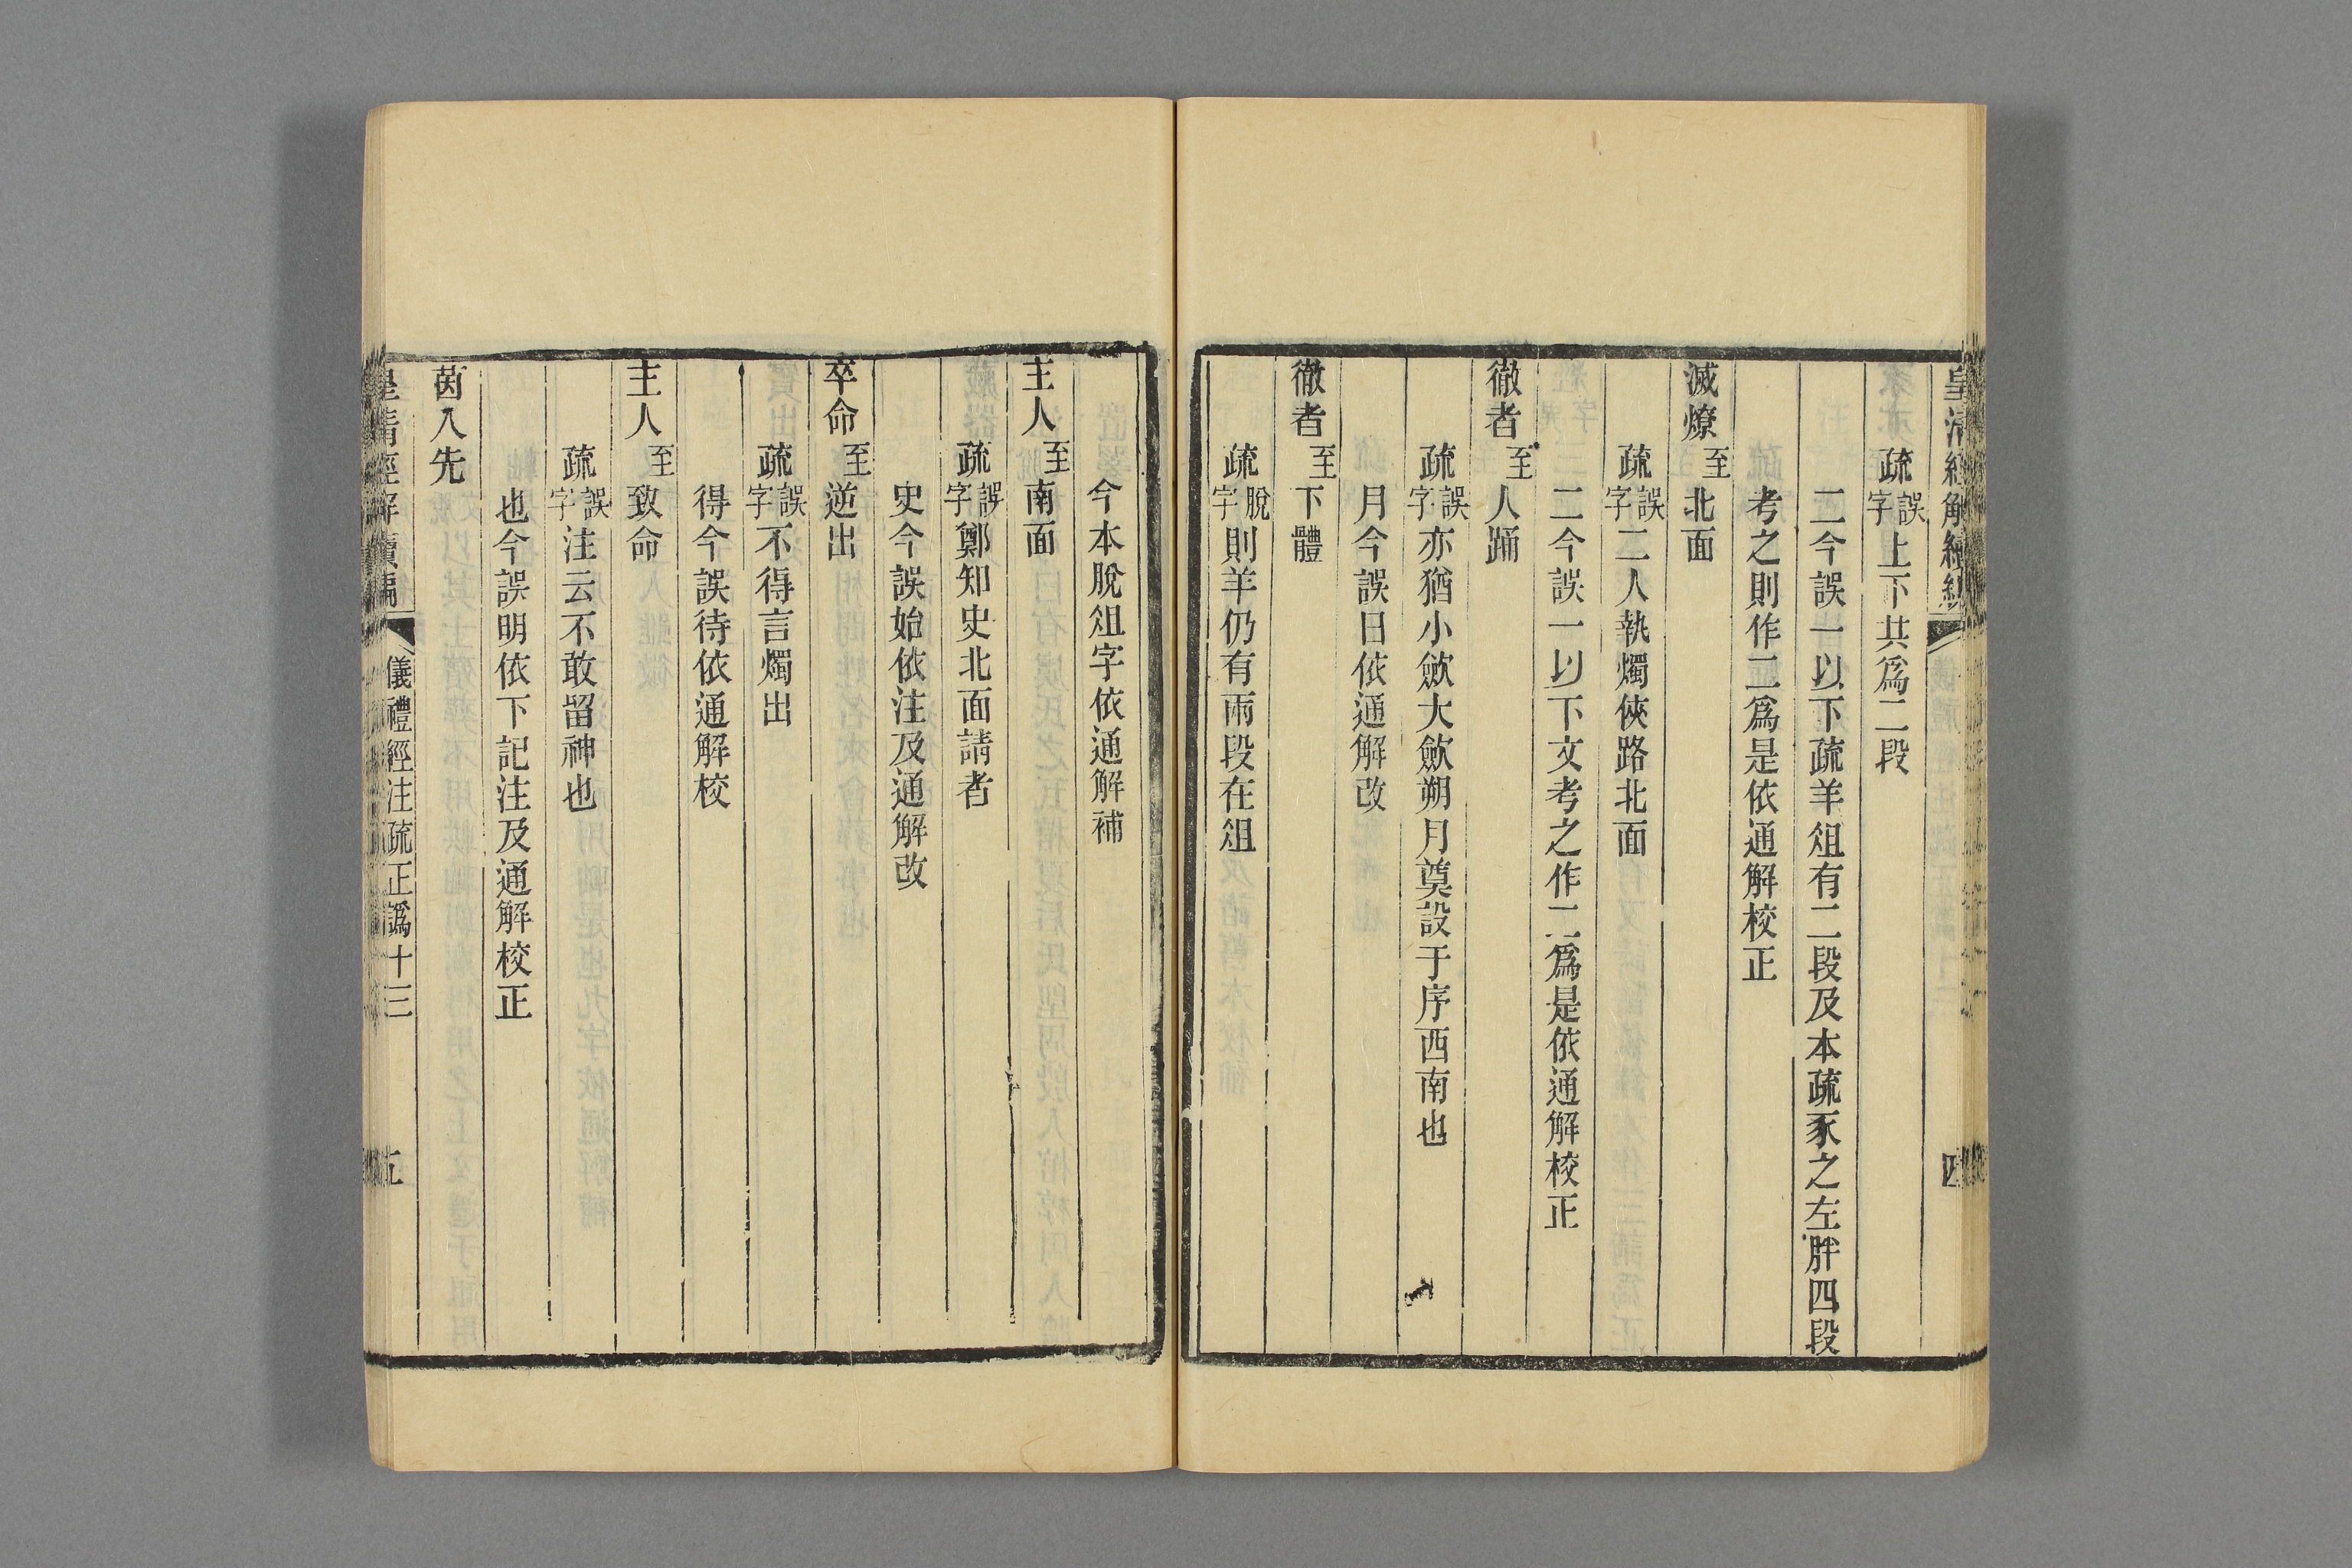 疏誤字上下共爲二段
二今誤一以下疏羊俎有二段及本疏豕之左胖四段
考之則作二爲是依通解校正
滅燎至北面
疏誤字二人執燭俠路北面
二今誤一以下文考之作二爲是依通解校正
徹者至人踊
疏誤字亦猶小歛大歛朔月奠設于序西南也
月今誤日依通解改
徹者至下體
疏脫字則羊仍有兩段在俎
今本脫俎字依通解補
主人至南面
疏誤字鄭知史北面請者
史今誤始依注及通解改
卒命至逆出
疏誤字不得言燭出
得今誤待依通解校
主人至致命
疏誤字注云不敢留神也
也今誤明依下記注及通解校正
茵入先
皇清經解續編 儀禮經注疏正譌十三 五